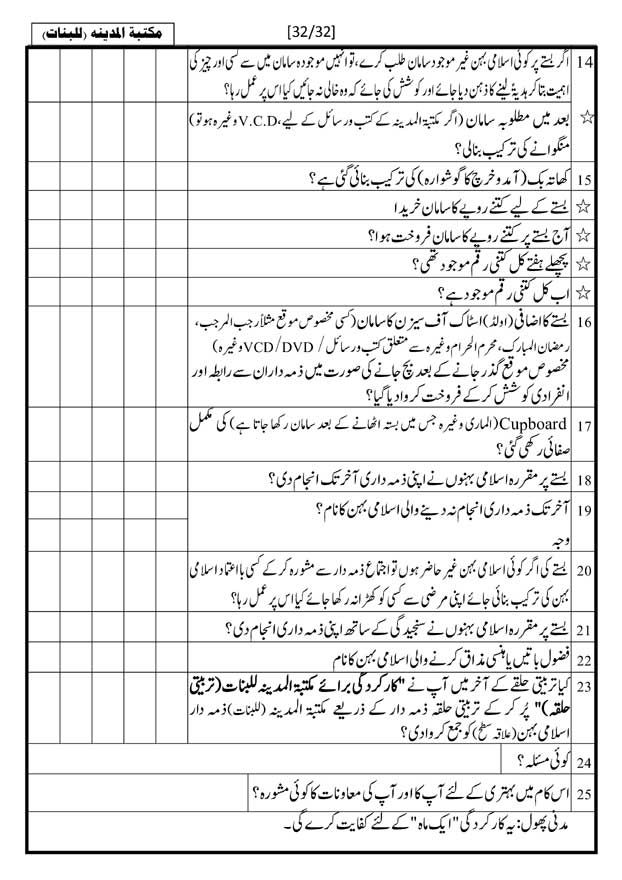 مکتبة المدينه (للبنات)
[32/32]
14 اگر بستے پر کوئی اسلامی بہن غیر موجود سامان طلب کرے، تو انہیں موجودہ سامان میں سے کسی اور چیز کی
اہمیت بتا کر ہدیۃً لینے کا ذہن دیا جائے اور کوشش کی جائے کہ وہ خالی نہ جائیں کیا اس پر عمل رہا؟
☆ بعد میں مطلوبہ سامان (اگر مکتبۃ المدینہ کے کتب ورسائل کے لیے، V.C.D وغیرہ ہو تو)
منگوانے کی ترکیب بنالی؟
15 کھاتہ بک (آمد وخرچ کا گوشوارہ) کی ترکیب بنائی گئی ہے؟
☆ بستے کے لیے کتنے روپے کا سامان خریدا
☆ آج بستے پر کتنے روپے کا سامان فروخت ہوا؟
☆ پچھلے ہفتے کل کتنی رقم موجود تھی؟
☆ اب کل کتنی رقم موجود ہے؟
16 بستے کا اضافی (اولڈ) اسٹاک آف سیزن کا سامان (کسی مخصوص موقع مثلاً رجب المرجب،
رمضان المبارک، محرم الحرام وغیرہ سے متعلق کتب ورسائل / VCD/DVD وغیرہ)
مخصوص موقع گذر جانے کے بعد بچ جانے کی صورت میں ذمہ داران سے رابطہ اور
انفرادی کوشش کر کے فروخت کروا دیا گیا؟
17 Cupboard (الماری وغیرہ جس میں بستہ اٹھانے کے بعد سامان رکھا جاتا ہے) کی مکمل
صفائی رکھی گئی؟
18 بستے پر مقررہ اسلامی بہنوں نے اپنی ذمہ داری آخر تک انجام دی؟
19 آخر تک ذمہ داری انجام نہ دینے والی اسلامی بہن کا نام؟
وجہ
20 بستے کی اگر کوئی اسلامی بہن غیر حاضر ہوں تو اجتماع ذمہ دار سے مشورہ کر کے کسی بااعتماد اسلامی
بہن کی ترکیب بنائی جائے اپنی مرضی سے کسی کو کھڑا نہ رکھا جائے کیا اس پر عمل رہا؟
21 بستے پر مقررہ اسلامی بہنوں نے سنجیدگی کے ساتھ اپنی ذمہ داری انجام دی؟
22 فضول باتیں یا ہنسی مذاق کرنے والی اسلامی بہن کا نام
23 کیا تربیتی حلقے کے آخر میں آپ نے "کارکردگی برائے مکتبۃ المدینہ للبنات (تربیتی
حلقہ)" پُر کر کے تربیتی حلقہ ذمہ دار کے ذریعے مکتبۃ المدینہ (للبنات) ذمہ دار
اسلامی بہن (علاقہ سطح) کو جمع کروا دی؟
24 کوئی مسئلہ؟
25 اس کام میں بہتری کے لئے آپ کا اور آپ کی معاونات کا کوئی مشورہ؟
مدنی پھول: یہ کارکردگی "ایک ماہ" کے لئے کفایت کرے گی۔